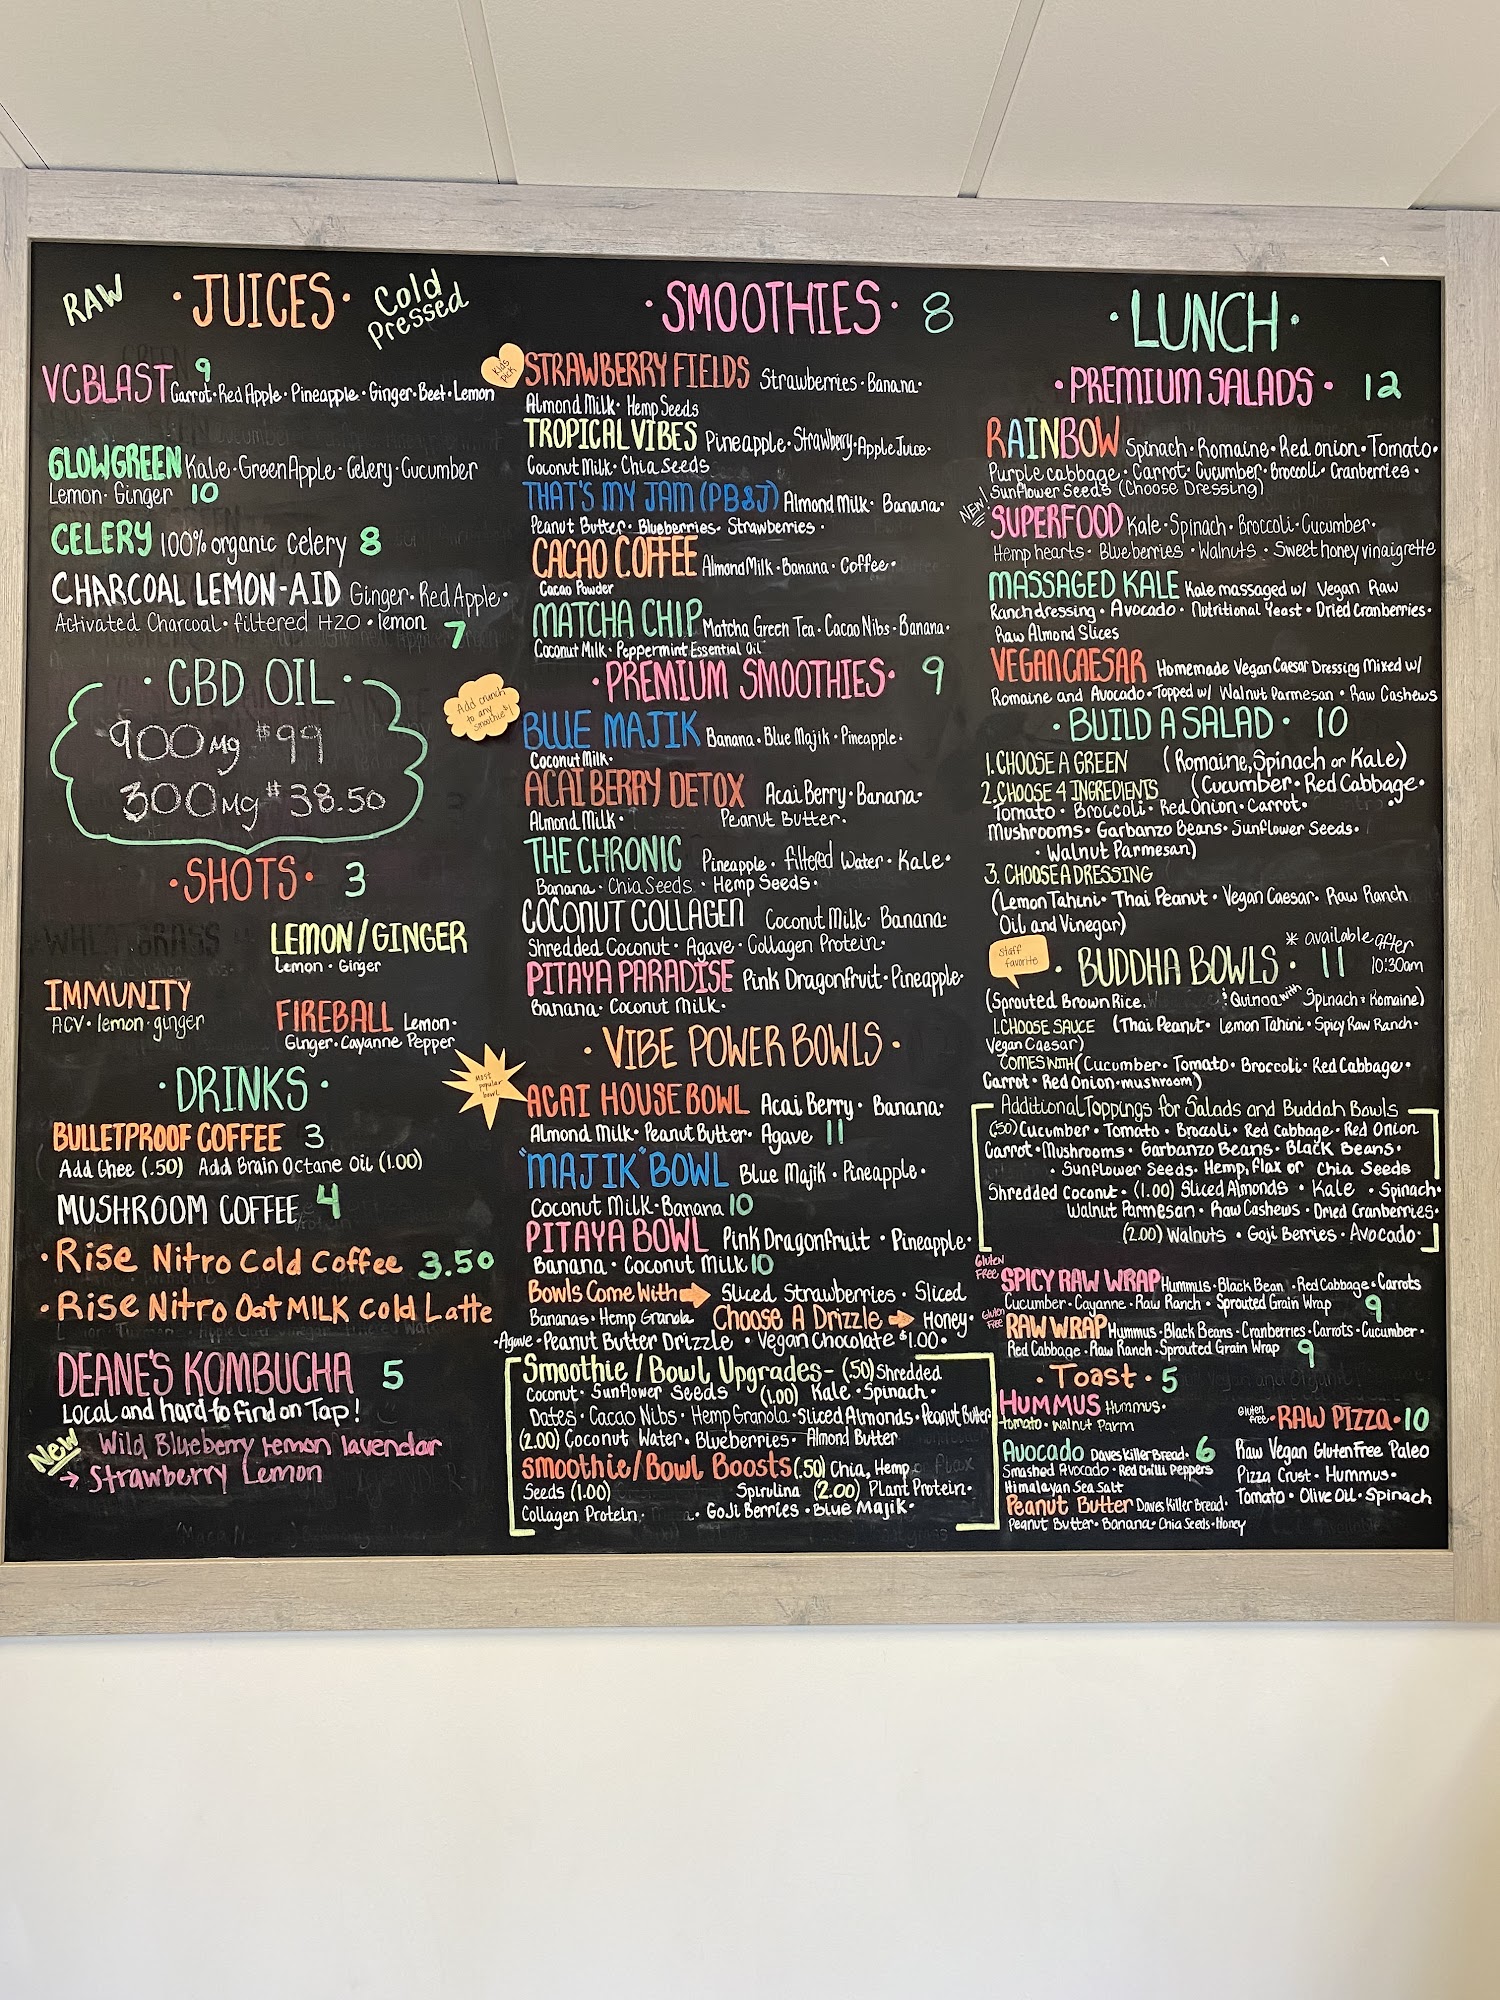 RAW
• JUICES •
Cold
Pressed
VC BLAST 9 Carrot • Red Apple • Pineapple • Ginger • Beet • Lemon
GLOWGREEN Kale • Green Apple • Celery • Cucumber
Lemon • Ginger 10
CELERY 100% organic Celery 8
CHARCOAL LEMON-AID Ginger • Red Apple •
Activated Charcoal • filtered H2O • lemon 7
• CBD OIL •
900mg $99
300mg $38.50
• SHOTS • 3
LEMON / GINGER
Lemon • Ginger
IMMUNITY
ACV • lemon • ginger
FIREBALL Lemon •
Ginger • Cayanne Pepper
• DRINKS •
BULLETPROOF COFFEE 3
Add Ghee (.50) Add Brain Octane Oil (1.00)
MUSHROOM COFFEE 4
• Rise Nitro Cold Coffee 3.50
• Rise Nitro Oat MILK Cold Latte
DEANE'S KOMBUCHA 5
Local and hard to find on Tap!
New Wild Blueberry Lemon lavendar
→ Strawberry Lemon
• SMOOTHIES • 8
Kids
Pick
STRAWBERRY FIELDS Strawberries • Banana •
Almond Milk • Hemp Seeds
TROPICAL VIBES Pineapple • Strawbery • Apple Juice •
Coconut Milk • Chia Seeds
THAT'S MY JAM (PB&J) Almond Milk • Banana •
Peanut Butter • Blueberries • Strawberries •
CACAO COFFEE Almond Milk • Banana • Coffee •
Cacao Powder
MATCHA CHIP Matcha Green Tea • Cacao Nibs • Banana •
Coconut Milk • Peppermint Essential Oil
• PREMIUM SMOOTHIES • 9
Add crunch
to any
smoothie $1
BLUE MAJIK Banana • Blue Majik • Pineapple •
Coconut Milk •
ACAI BERRY DETOX Acai Berry • Banana •
Almond Milk • Peanut Butter •
THE CHRONIC Pineapple • filtered Water • Kale •
Banana • Chia Seeds • Hemp Seeds •
COCONUT COLLAGEN Coconut Milk • Banana •
Shredded Coconut • Agave • Collagen Protein •
PITAYA PARADISE Pink Dragonfruit • Pineapple •
Banana • Coconut Milk •
• VIBE POWER BOWLS •
Most
popular
bowl
ACAI HOUSE BOWL Acai Berry • Banana •
Almond Milk • Peanut Butter • Agave 11
"MAJIK" BOWL Blue Majik • Pineapple •
Coconut Milk • Banana 10
PITAYA BOWL Pink Dragonfruit • Pineapple •
Banana • Coconut Milk 10
Bowls Come With → Sliced Strawberries • Sliced
Bananas • Hemp Granola Choose A Drizzle → Honey •
• Agave • Peanut Butter Drizzle • Vegan Chocolate $1.00 •
Smoothie / Bowl Upgrades - (.50) Shredded
Coconut • Sunflower Seeds (1.00) Kale • Spinach •
Dates • Cacao Nibs • Hemp Granola • Sliced Almonds • Peanut Butter
(2.00) Coconut Water • Blueberries • Almond Butter
Smoothie / Bowl Boosts (.50) Chia, Hemp
Seeds (1.00) Spirulina (2.00) Plant Protein •
Collagen Protein • • Goji Berries • Blue Majik •
• LUNCH •
• PREMIUM SALADS • 12
RAINBOW Spinach • Romaine • Red onion • Tomato •
Purple cabbage • Carrot • Cucumber • Broccoli • Cranberries •
Sunflower Seeds (Choose Dressing)
NEW! SUPERFOOD Kale • Spinach • Broccoli • Cucumber •
Hemp hearts • Blueberries • Walnuts • Sweet honey vinaigrette
MASSAGED KALE Kale massaged w/ Vegan Raw
Ranch dressing • Avocado • Nutritional Yeast • Dried Cranberries •
Raw Almond Slices
VEGAN CAESAR Homemade Vegan Caesar Dressing Mixed w/
Romaine and Avocado • Topped w/ Walnut Parmesan • Raw Cashews
• BUILD A SALAD • 10
1. CHOOSE A GREEN (Romaine, Spinach or Kale)
2. CHOOSE 4 INGREDIENTS (Cucumber • Red Cabbage •
Tomato • Broccoli • Red Onion • Carrot •
Mushrooms • Garbanzo Beans • Sunflower Seeds •
• Walnut Parmesan)
3. CHOOSE A DRESSING
(Lemon Tahini • Thai Peanut • Vegan Caesar • Raw Ranch
Oil and Vinegar)
Staff
favorite
• BUDDHA BOWLS • 11 * available after
10:30am
(Sprouted Brown Rice & Quinoa with Spinach & Romaine)
1. CHOOSE SAUCE (Thai Peanut • Lemon Tahini • Spicy Raw Ranch •
Vegan Caesar)
COMES WITH (Cucumber • Tomato • Broccoli • Red Cabbage •
Carrot • Red Onion • mushroom)
Additional Toppings for Salads and Buddah Bowls
(.50) Cucumber • Tomato • Broccoli • Red Cabbage • Red Onion
Carrot • Mushrooms • Garbanzo Beans • Black Beans •
• Sunflower Seeds • Hemp, flax or Chia Seeds
Shredded Coconut • (1.00) Sliced Almonds • Kale • Spinach •
Walnut Parmesan • Raw Cashews • Dried Cranberries •
(2.00) Walnuts • Goji Berries • Avocado •
Gluten
Free
SPICY RAW WRAP Hummus • Black Bean • Red Cabbage • Carrots
Cucumber • Cayanne • Raw Ranch • Sprouted Grain Wrap 9
Gluten
Free
RAW WRAP Hummus • Black Beans • Cranberries • Carrots • Cucumber •
Red Cabbage • Raw Ranch • Sprouted Grain Wrap 9
• Toast • 5
HUMMUS Hummus •
tomato • walnut Parm
Avocado Daves Killer Bread • 6
Smashed Avocado • Red Chilli Peppers
Himalayan Sea Salt
Peanut Butter Daves Killer Bread •
Peanut Butter • Banana • Chia Seeds • Honey
Gluten
free
• RAW PIZZA • 10
Raw Vegan Gluten Free Paleo
Pizza Crust • Hummus •
Tomato • Olive Oil • Spinach